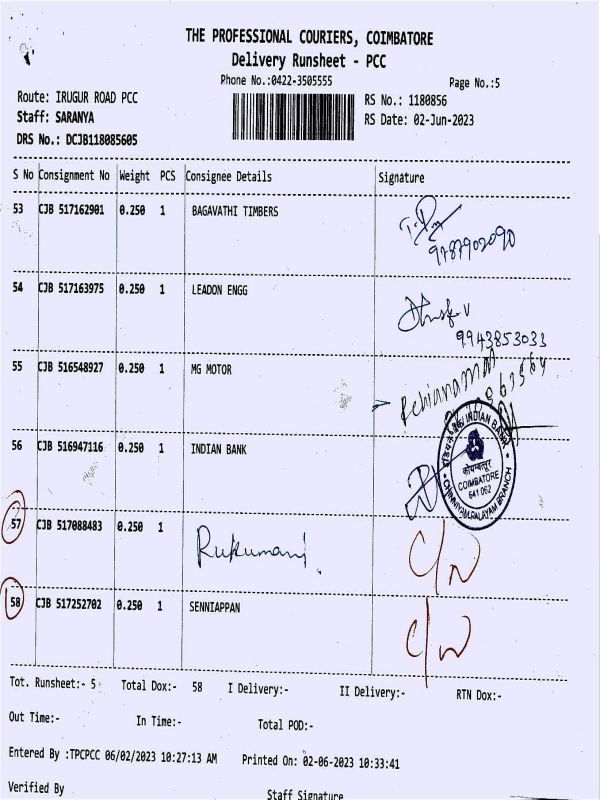 THE PROFESSIONAL COURIERS, COIMBATORE
Delivery Runsheet - PCC
Phone No.:0422-3505555 Page No.:5
Route: IRUGUR ROAD PCC RS No.: 1180856
Staff: SARANYA RS Date: 02-Jun-2023
DRS No.: DCJB118085605
S No Consignment No Weight PCS Consignee Details Signature
53 CJB 517162901 0.250 1 BAGAVATHI TIMBERS
9787902090
54 CJB 517163975 0.250 1 LEADON ENGG
9943853033
55 CJB 516548927 0.250 1 MG MOTOR
56 CJB 516947116 0.250 1 INDIAN BANK
INDIAN BANK
कोयम्बत्तूर
COIMBATORE
641 062
CHINNIYAMPALAYAM BRANCH
57 CJB 517088483 0.250 1 Rukumani C/N
58 CJB 517252702 0.250 1 SENNIAPPAN C/N
Tot. Runsheet:- 5 Total Dox:- 58 I Delivery:- II Delivery:- RTN Dox:-
Out Time:- In Time:- Total POD:-
Entered By :TPCPCC 06/02/2023 10:27:13 AM Printed On: 02-06-2023 10:33:41
Verified By Staff Signature